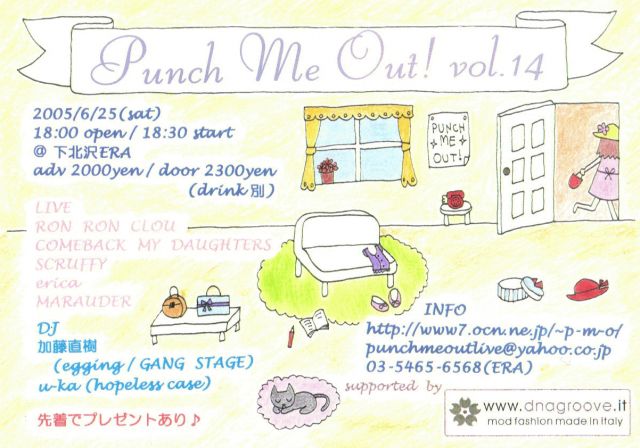 Punch Me Out! vol.14
2005/6/25(sat)
18:00 open / 18:30 start
@ 下北沢ERA
adv 2000yen / door 2300yen
(drink 別)
LIVE
RON RON CLOU
COMEBACK MY DAUGHTERS
SCRUFFY
erica
MARAUDER
DJ
加藤直樹
(egging / GANG STAGE)
u-ka (hopeless case)
先着でプレゼントあり♪
PUNCH
ME
OUT!
INFO
http://www7.ocn.ne.jp/~p-m-o/
punchmeoutlive@yahoo.co.jp
03-5465-6568(ERA)
supported by
www.dnagroove.it
mod fashion made in italy